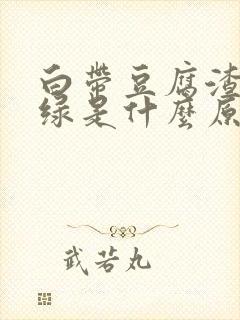 白带豆腐渣
绿是什麽原
武若丸